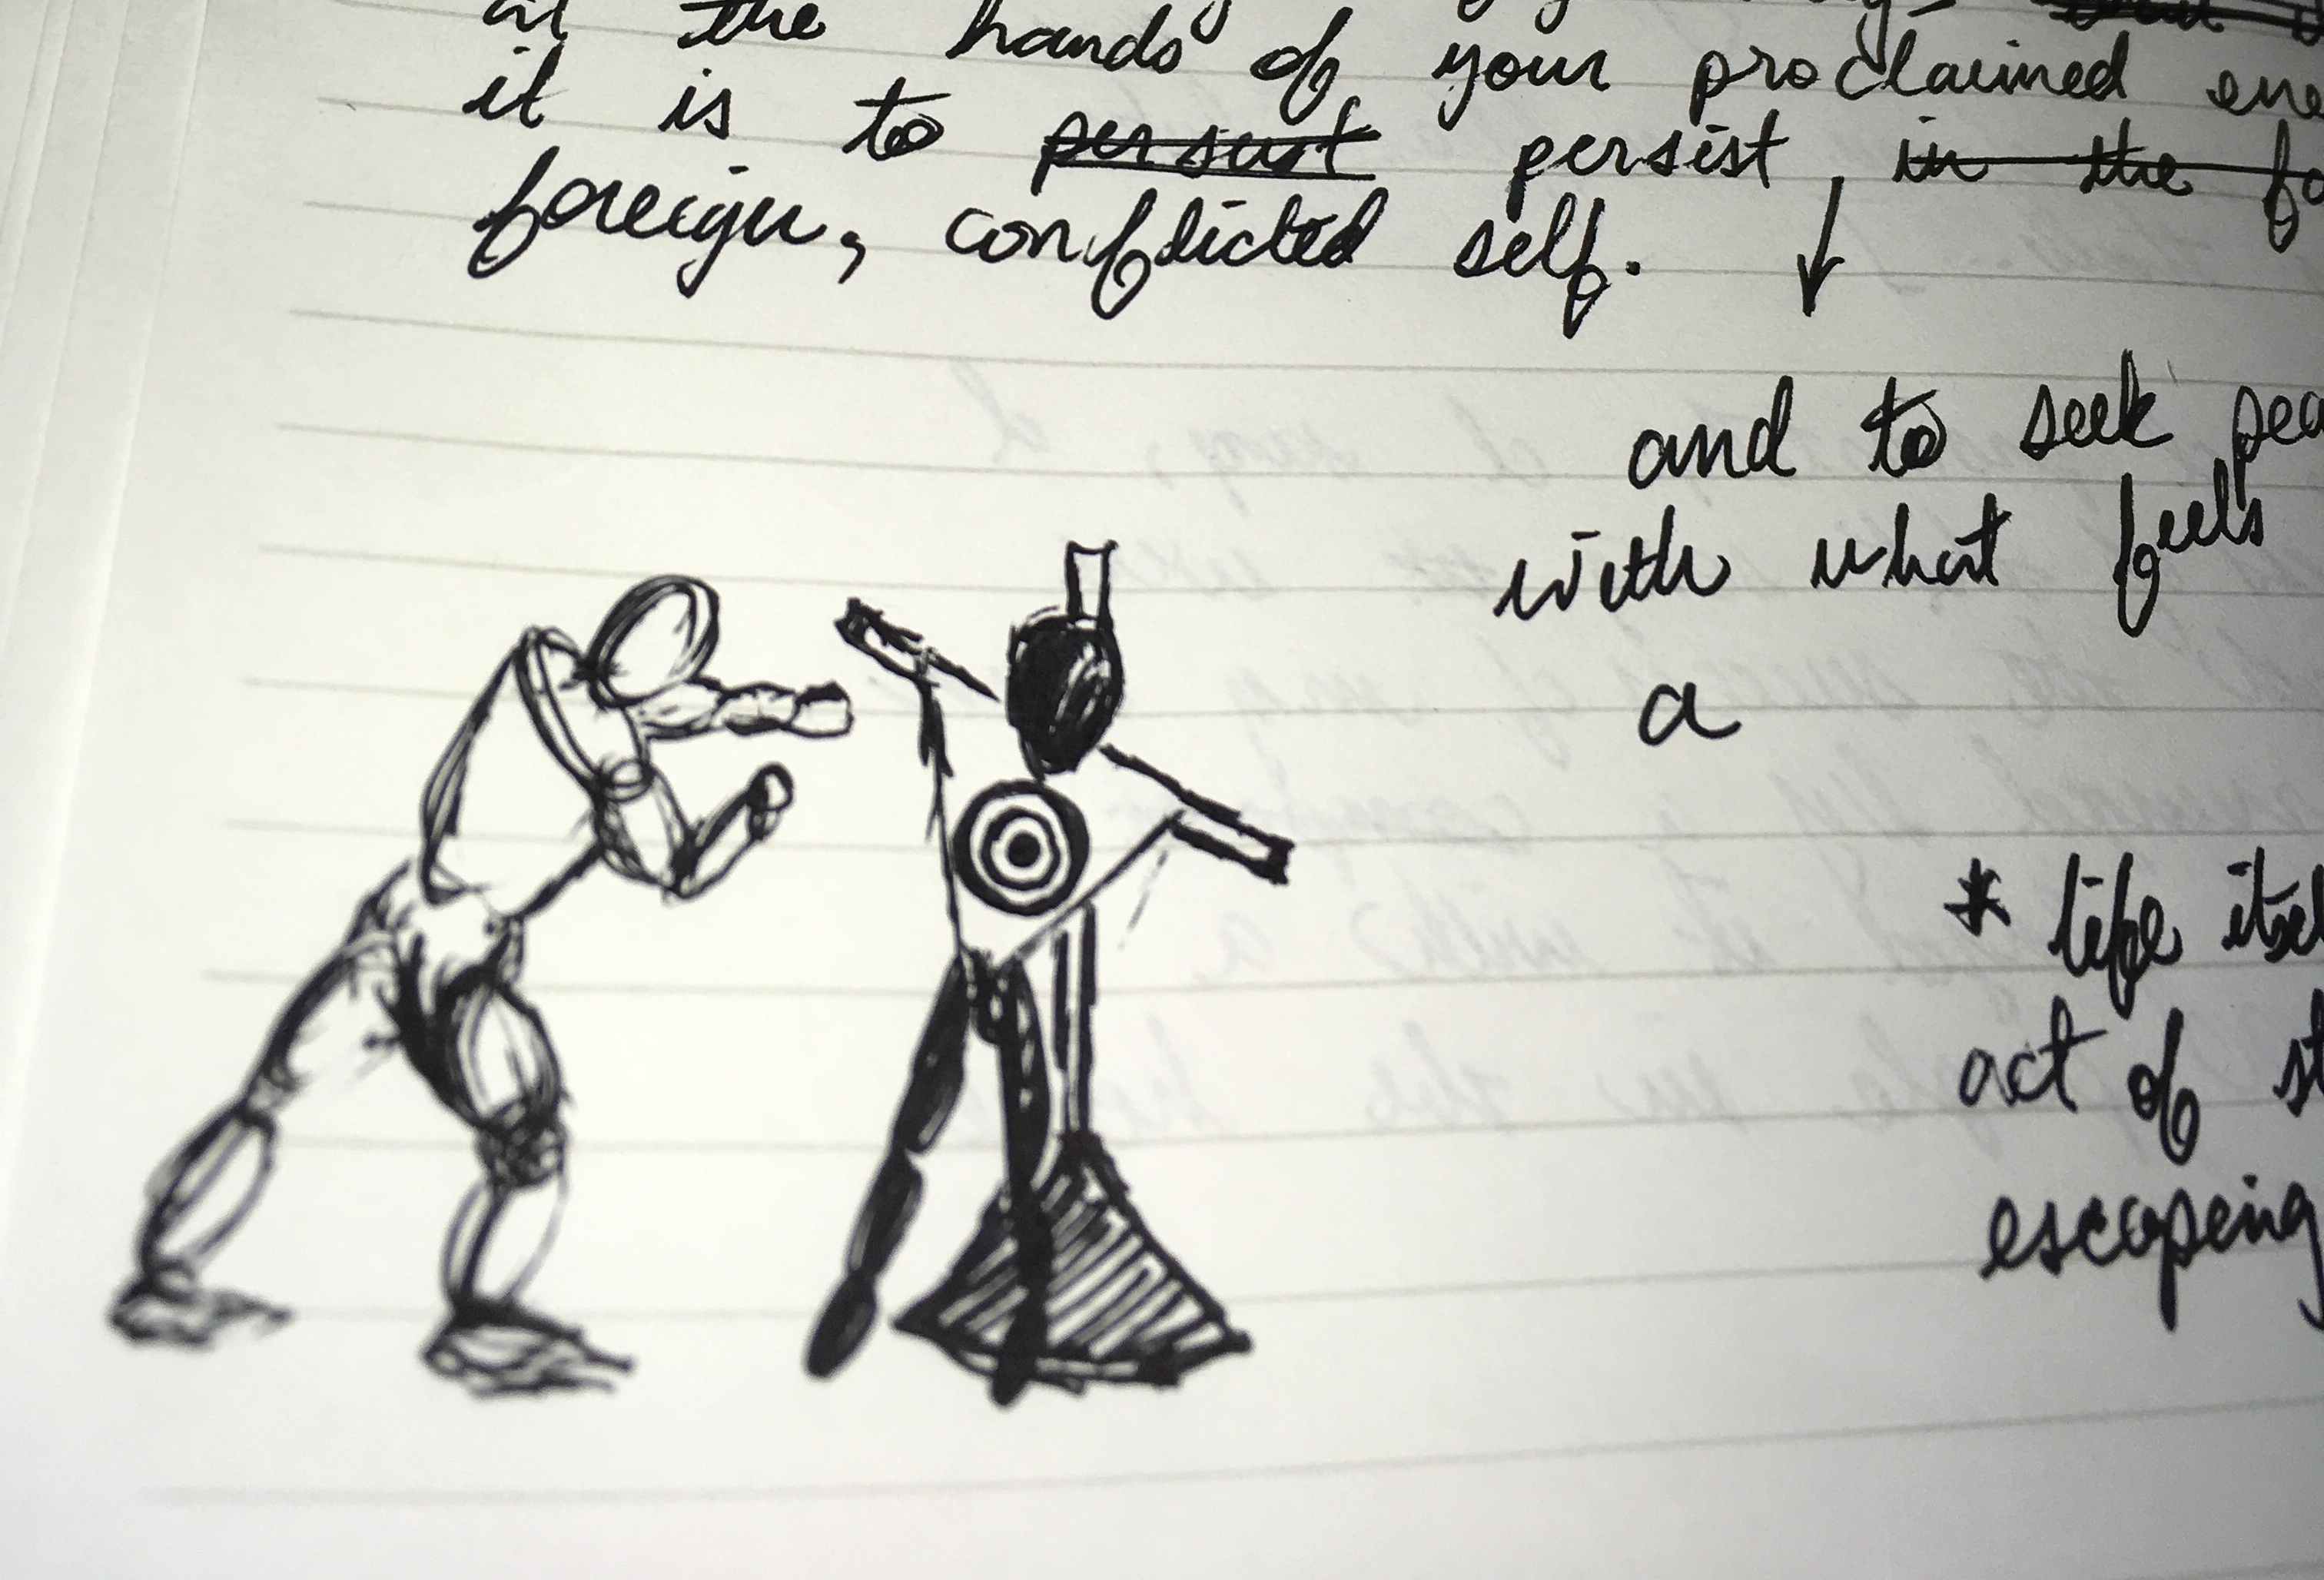 at the hands of your proclaimed
it is to persist persist in the
foreign, conflicted self.
and to seek
with what feels
a
* life
act of
escaping